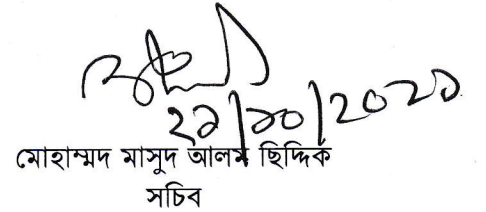 ২১/১০/২০২১
মোহাম্মদ মাসুদ আলম ছিদ্দিক
সচিব